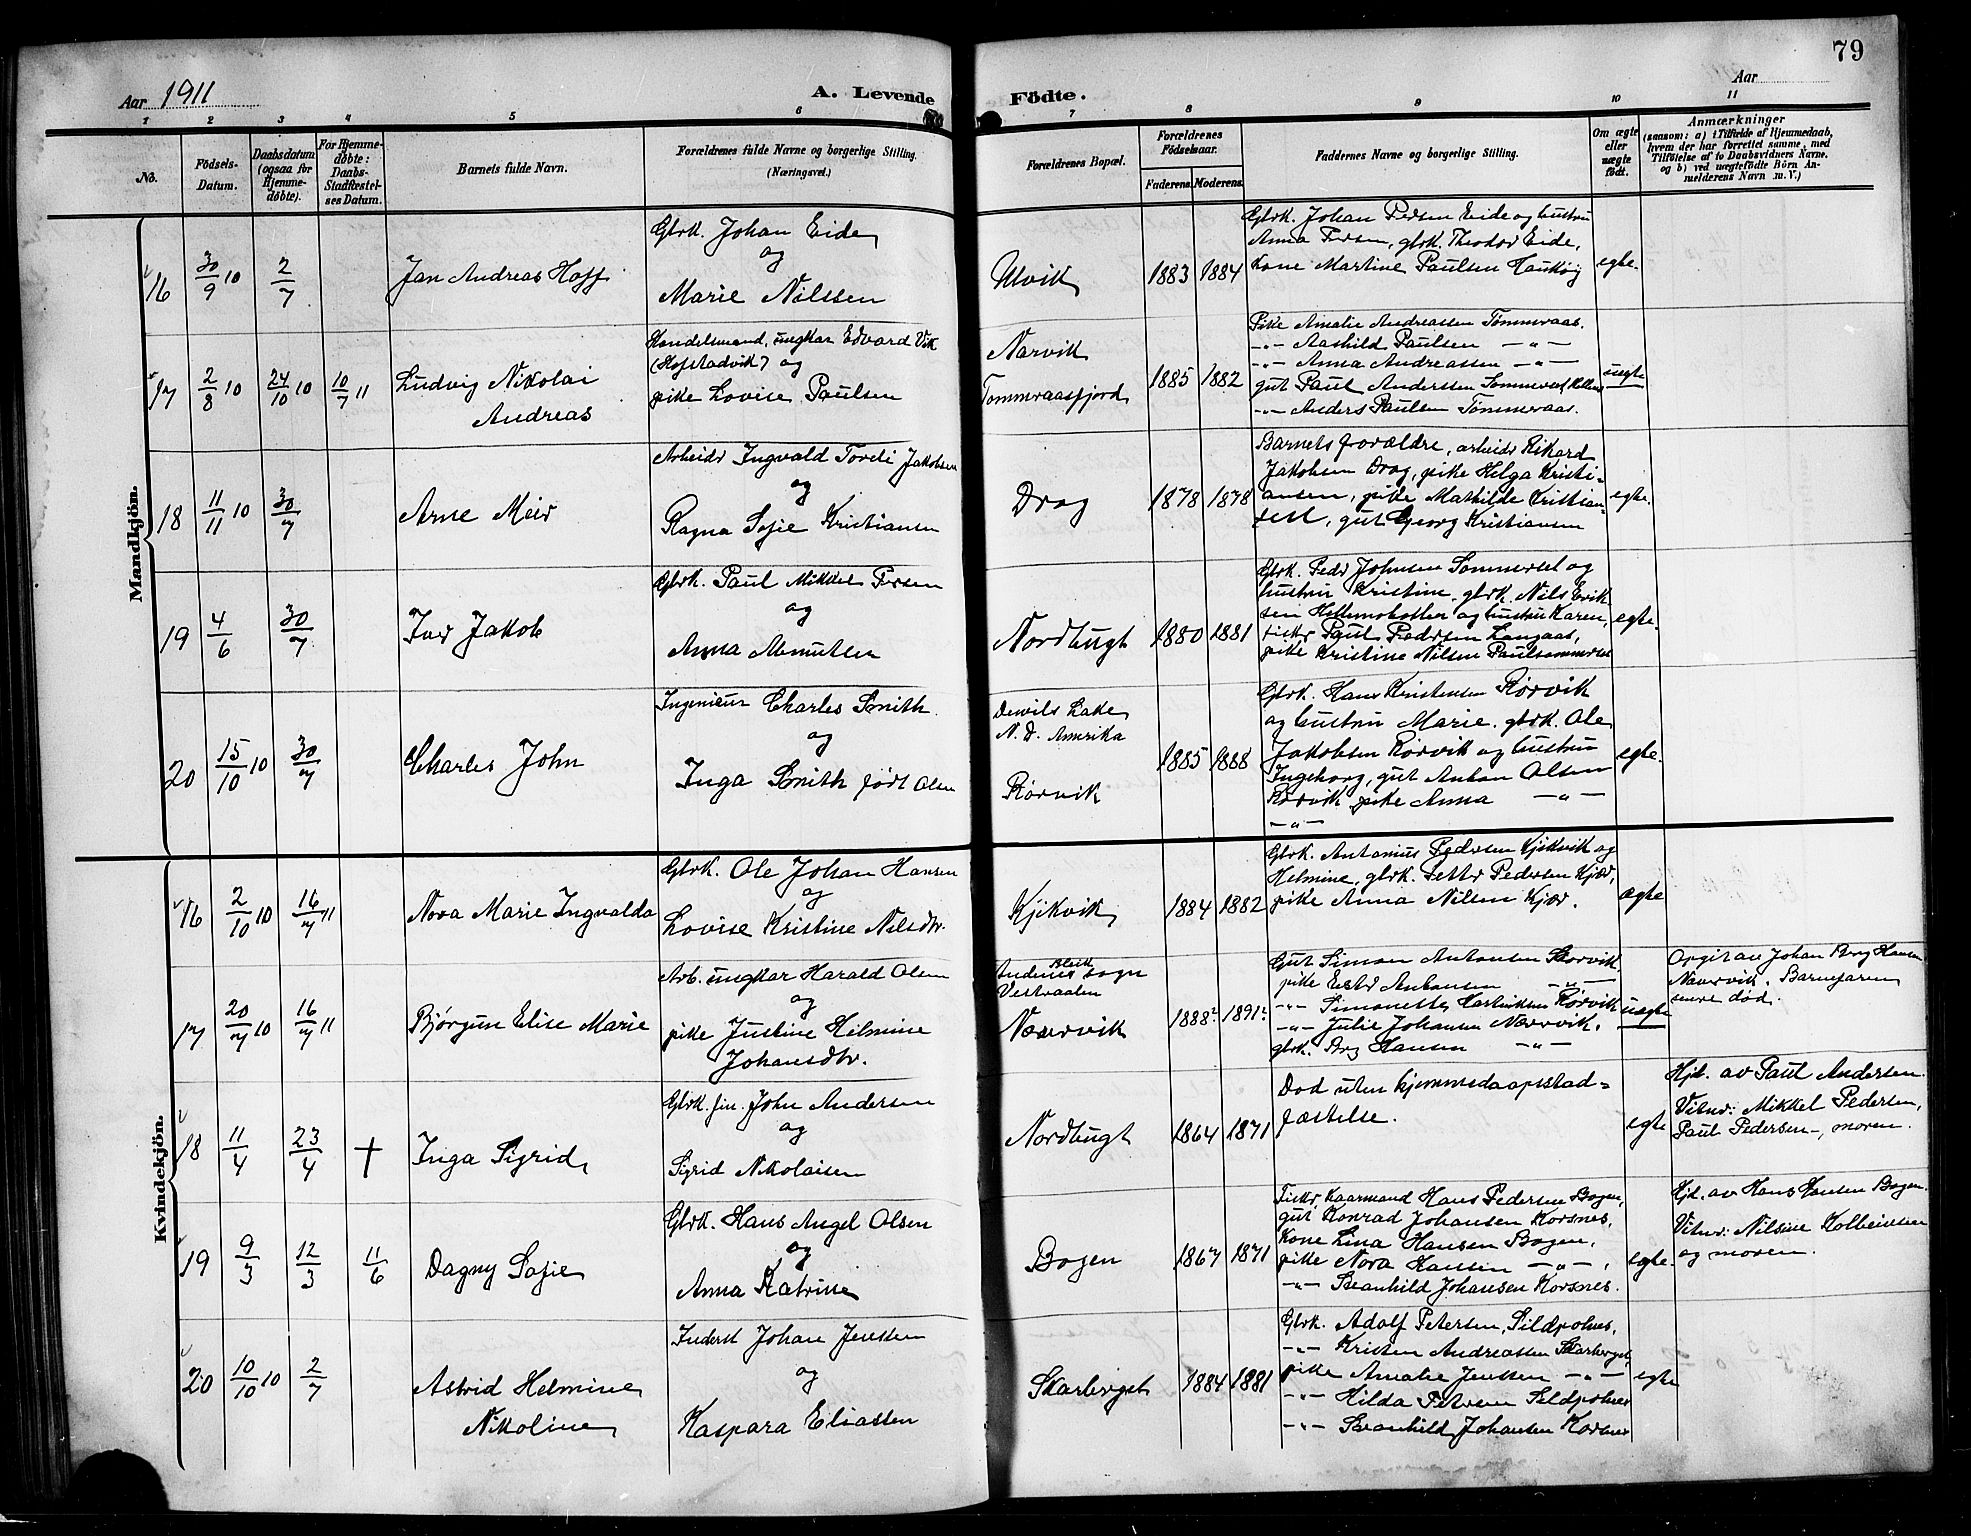 79
Aar 1911
A. Levende
Födte.
Aar
1 2 3 4 5 6 7 8 9 10 11
No.
Födsels-
Datum.
Daabsdatum
(ogsaa for
Hjemme-
döbte).
For Hjemme-
döbte:
Daabs-
Stadfæstel-
ses Datum.
Barnets fulde Navn.
Forældrenes fulde Navne og borgerlige Stilling.
(Næringsvei.)
Forældrenes Bopæl.
Forældrenes
Födselsaar.
Faderens.
Moderens.
Faddernes Navne og borgerlige Stilling.
Om ægte
eller
uægte
født.
Anmærkninger
(saasom: a) i Tilfælde af Hjemmedaab,
hvem der har forrettet samme, med
Tilföielse af to Daabsvidners Navne.
og b) ved uægtefödte Börn An-
melderens Navn m. V.)
Mandkjön.
16
30/9 10
2/7
Jan Andreas Hoff
Gbrk. Johan Eide
og
Marie Nilssen
Ulvik
1883
1884
Gbrk. Johan Persen Eide og hustru
Anna Persen, gbrk. Theodor Eide,
Kone Martine Paulsen Haukøy
egte.
17
2/8 10
24/10 10
10/7 11
Ludvig Nikolai
Andreas
Handelsmand, ungkar Edvard Vik
(Hofstadvik) og
pike Lovise Paulsen
Narvik
Tømmeraasfjord
1885
1882
Pike Amalie Andreassen Tømmeraas.
-"- Aashild Paulsen -"-
-"- Anna Andreassen -"-
gut Paul Anderssen
-"- Anders Paulsen Tømmeraas.
uegte
18
11/11 10
30/7
Arne Meier
Arbeider Ingvald Tordi Jakobsen
og
Ragna Sofie Kristiansen
Drag
1878
1878
Barnets forældre, arbeider Rikard
Jakobsen Drag, pike Helga Kristi-
ansen, pike Mathilde Kristian-
sen, gut Georg Kristiansen
egte.
19
4/6
30/7
Iver Jakob
Gbrk. Paul Mikkel Persen
og
Anna Abmutsen
Nordbugt
1880
1881
Gbrk. Peder Johnsen Sommerset og
hustru Kristine, gbrk. Nils Erik-
sen Hellemobotten og hustru Karen,
fisker Paul Pedersen Langaas,
pike Kristine Nilsen Paulsommerset
egte.
20
15/10 10
30/7
Charles John
Ingeniør Charles Smith
og
Inga Smith født Olsen
Dewils Lake
N. D. Amerika
Rørvik
1885
1888
Gbrk. Hans Kristensen Rørvik
og hustru Marie. gbrk. Ole
Jakobsen Rørvik og hustru
Ingeborg, gut Anton Olsen
Rørvik pike Anna -"-
-"-
egte.
Kvindekjön.
16
2/10 10
16/7 11
Nora Marie Ingvalda
Gbrk. Ole Johan Hansen
og
Lovise Kristine Nilsdtr.
Kjikvik
1884
1882
Gbrk. Antonius Pedersen Kjikvik og
Helmine, gbrk. Petter Pedersen Kjær,
pike Anna Nilsen Kjær.
ægte
17
20/7 10
16/7 11
Bjørgun Elise Marie
Arb. ungkar Harald Olsen
og
pike Justine Helmine
Johansdtr.
Bleik
Andenes sogn
Vestraalen
Nærvik
1888?
1891?
Gut Simon Antonsen Storvik,
pike Ester Antonsen -"-
-"- Simonette Hartviksen Rørvik
-"- Julie Johansen Nærvik,
gbrk. Berg Hansen -"-
uegte
Opgit av Johan Berg Hansen
Nærvik. Barnefaren
senere død.
18
11/4
23/4
†
Inga Sigrid
Gbrk. fin. John Andersen
og
Sigrid Nikolaisen
Nordbugt
1864
1871
Død uten hjemmedaapsstad=
fæstelse.
egte
Hjd. av Paul Andersen.
Vitner: Mikkel Pedersen,
Paul Pedersen -, moren.
19
9/3
12/3
11/6
Dagny Sofie
Gbrk. Hans Angel Olsen
og
Anna Katrine
Bogen
1867
1871
Fisker, Kaarmand Hans Pedersen Bogen,
gut Konrad Johansen Korsnes,
Kone Lina Hansen Bogen,
pike Nora Hansen -"-,
-"- Svanhild Johansen Korsnes.
egte.
Hjd. av Hans Hansen Bogen.
Vitner: Nilsine Kolbeinsen
og moren.
20
10/10 10
2/7
Astrid Helmine
Nikoline
Inderst Johan Jenssen
og
Kaspara Eliassen
Skarberget
1884
1881
Gbrk. Adolf Petersen, Sildpolnes,
-"- Kristen Andreassen Skarberget,
pike Amalie Jenssen -"-
-"- Hilda Petersen Sildpolnes
-"- Svanhild Johansen Korsnes
egte